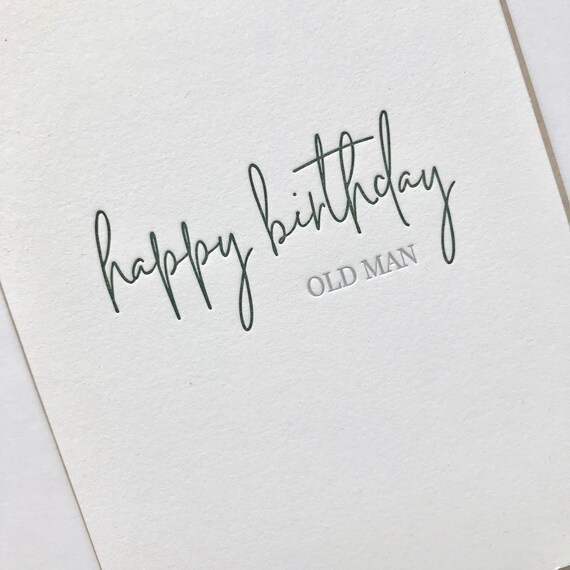 happy birthday
OLD MAN